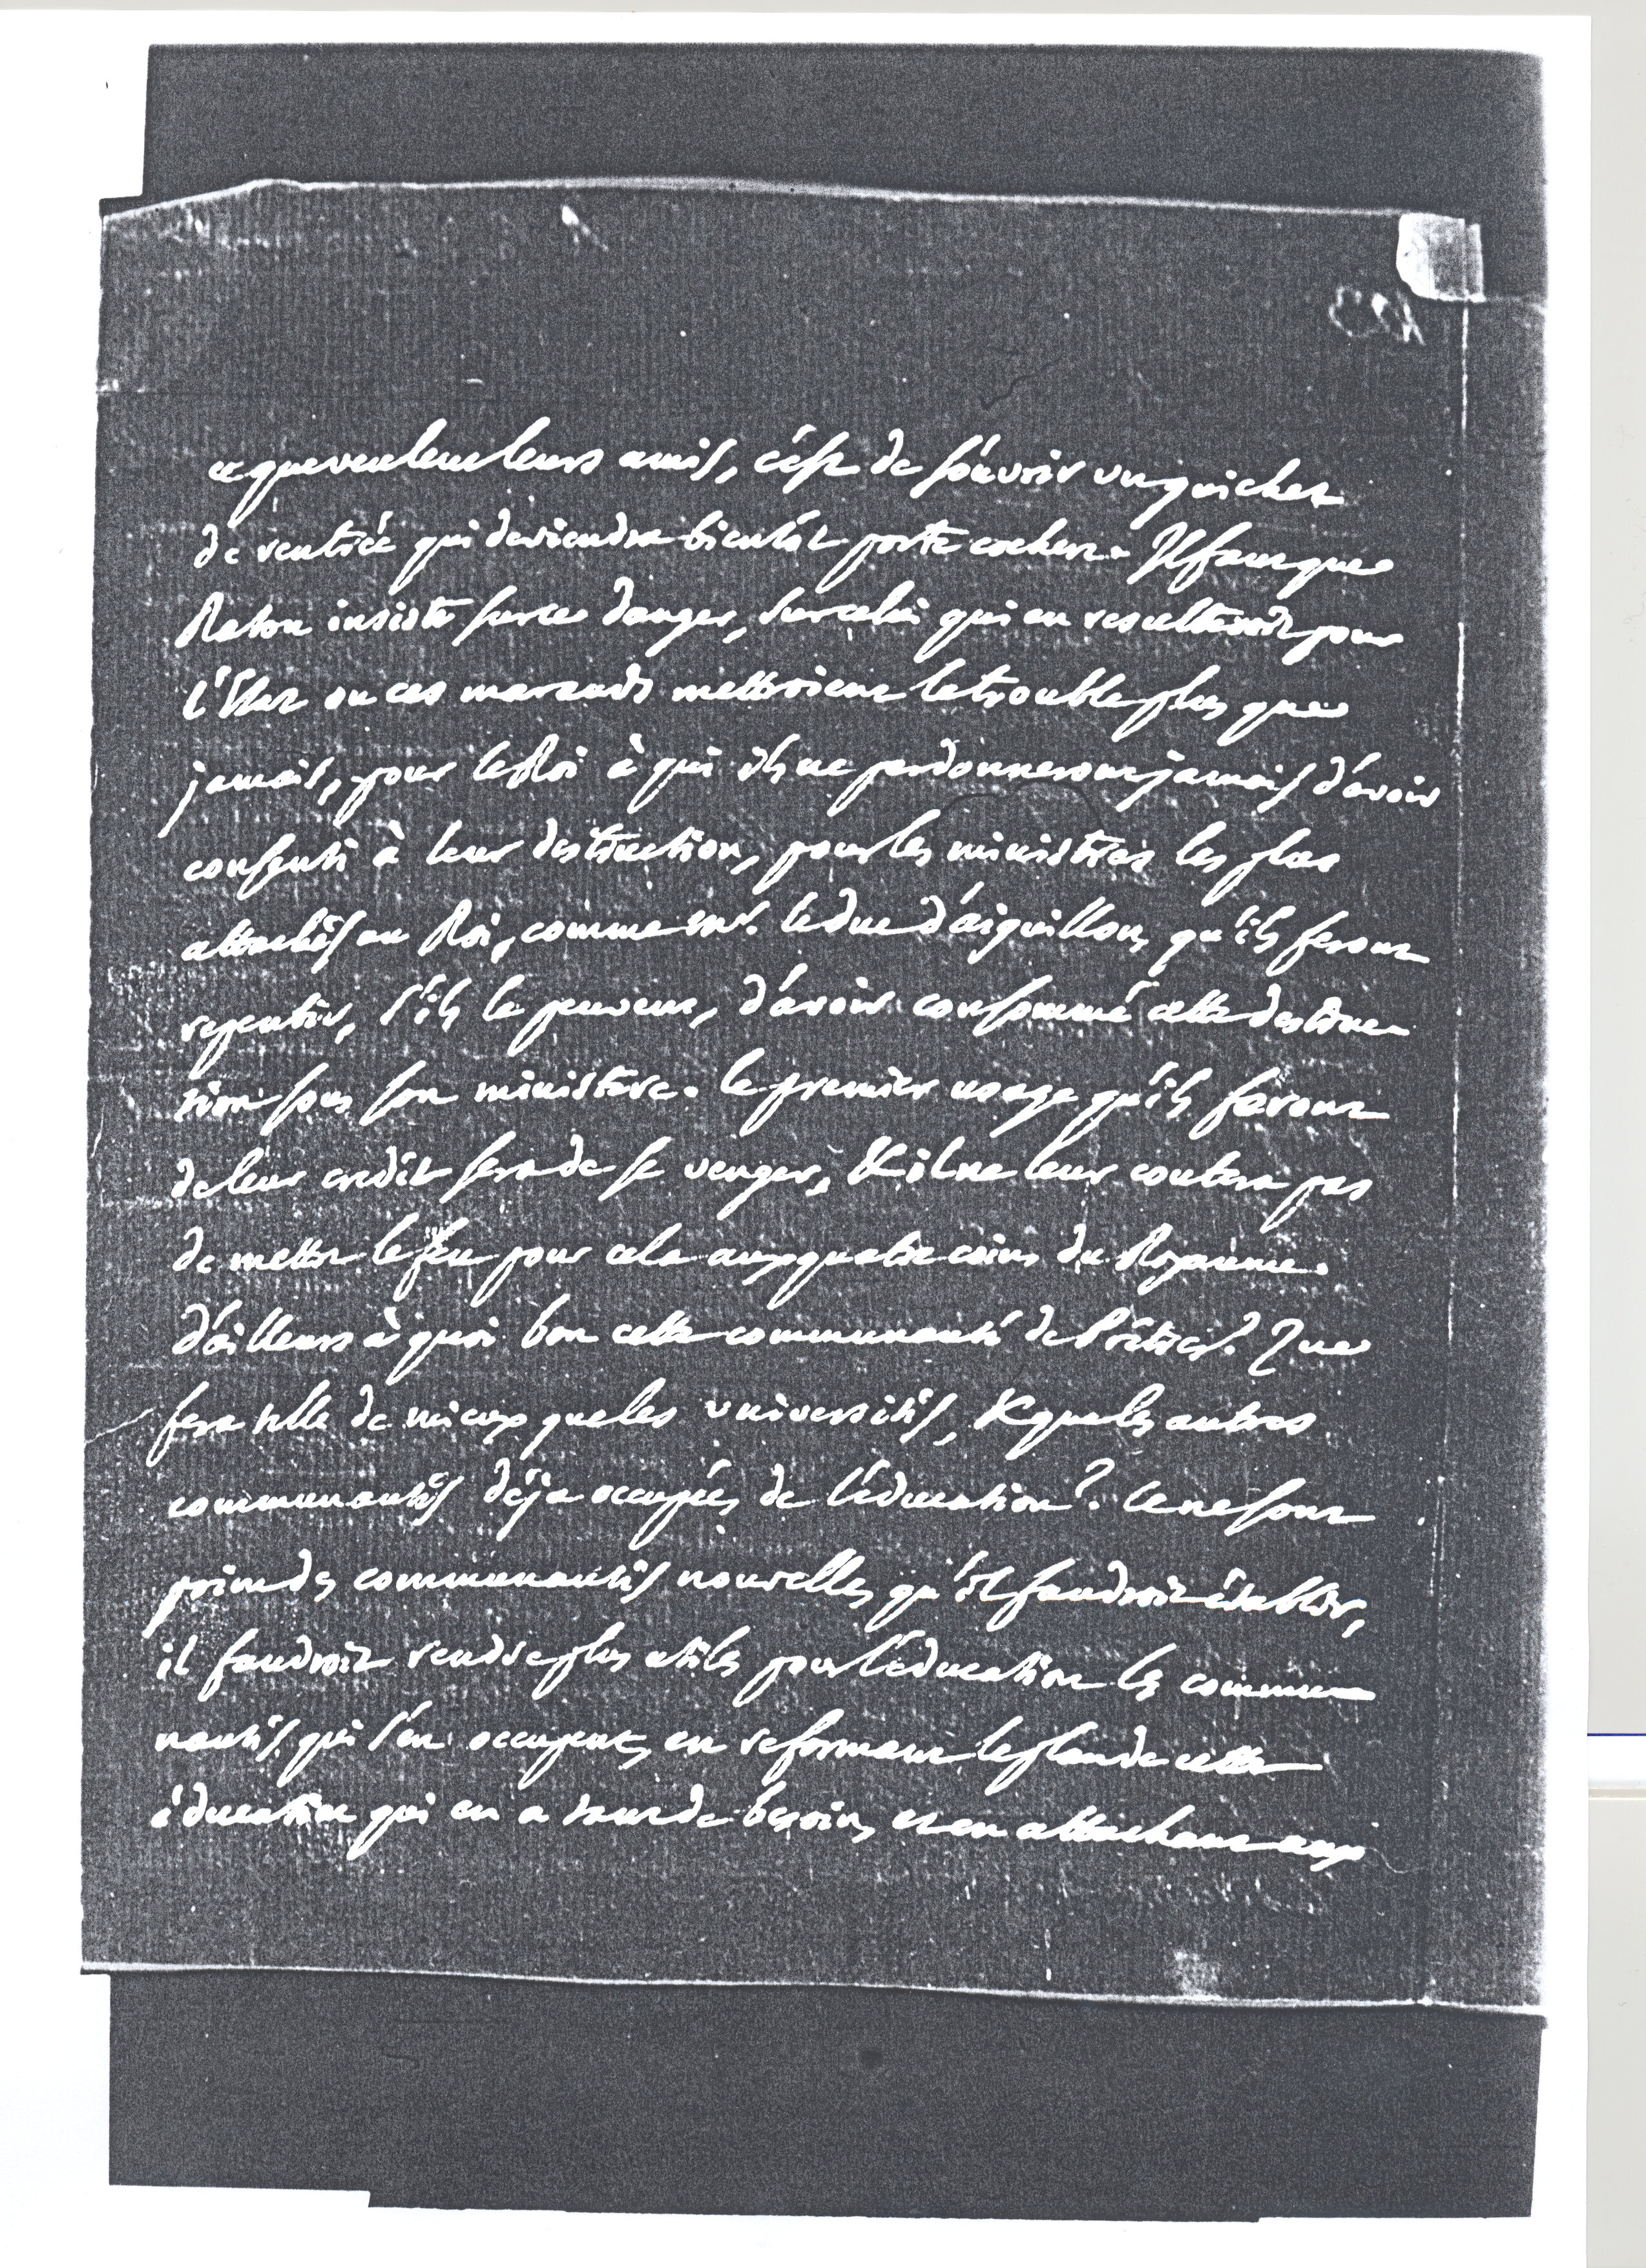 ce que veulent leurs amis, c'est de s'ouvrir un guichet
de rentrée qui deviendra bientôt porte cochere. Il faut que
Raton insiste sur ce danger, sur celui qui en resulteroit pour
l'Etat ou ces marauds mettroient le trouble plus que
jamais, pour le Roi à qui ils ne pardonneront jamais d'avoir
consenti à leur destruction, pour les ministres les plus
attachés au Roi, comme Mr. le duc d'aiguillon, qu'ils feront
repentir, s'ils le peuvent, d'avoir consommé cette destruc
tion sous son ministere. le premier usage qu'ils feront
de leur credit sera de se venger, & il ne leur coutera pas
de mettre le feu pour cela aux quatre coins du Royaume.
d'ailleurs à quoi bon cette communauté de Prêtres? Que
fera t'elle de mieux que les universités, & que les autres
communautés déja occupées de l'éducation? Ce ne sont
point des communautés nouvelles qu'il faudroit établir,
il faudroit rendre plus utiles pour l'éducation les commu
nautés qui s'en occupent, en reformant le plan de cette
éducation qui en a tant de besoin, et en attachant aux